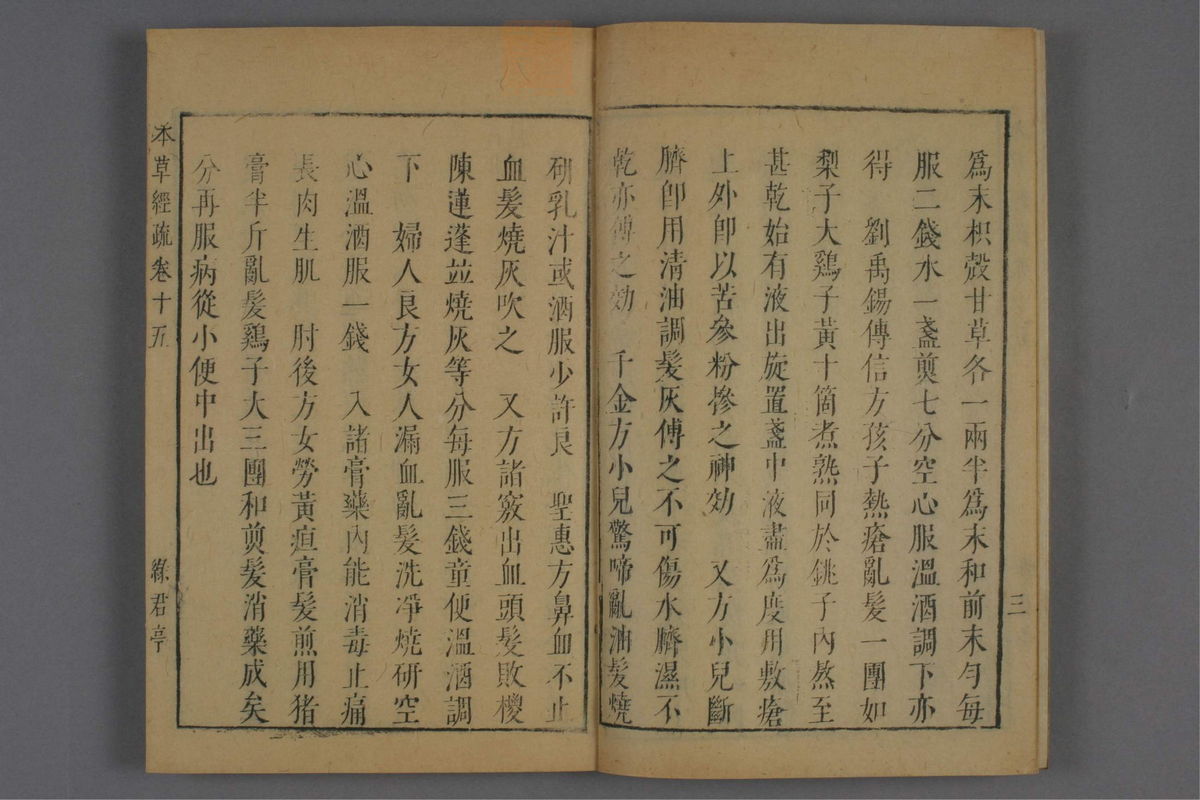 三
爲末枳殻甘草各一兩半爲末和前末勻每
服二錢水一盞煎七分空心服溫酒調下亦
得　劉禹錫傳信方孩子熱瘡亂髮一團如
梨子大鷄子黃十箇煮熟同於銚子內熬至
甚乾始有液出旋置盞中液盡爲度用敷瘡
上外卽以苦參粉摻之神効　又方小兒斷
臍卽用清油調髮灰傅之不可傷水臍濕不
乾亦傅之効　千金方小兒驚啼亂油髮燒
研乳汁或酒服少許良　聖惠方鼻血不止
血髮燒灰吹之　又方諸竅出血頭髮敗椶
陳蓮蓬竝燒灰等分每服三錢童便溫酒調
下　婦人良方女人漏血亂髮洗凈燒研空
心溫酒服一錢　入諸膏藥內能消毒止痛
長肉生肌　肘後方女勞黃疸膏髮煎用猪
膏半斤亂髮鷄子大三團和煎髮消藥成矣
分再服病從小便中出也
本草經疏卷十五
綠君亭